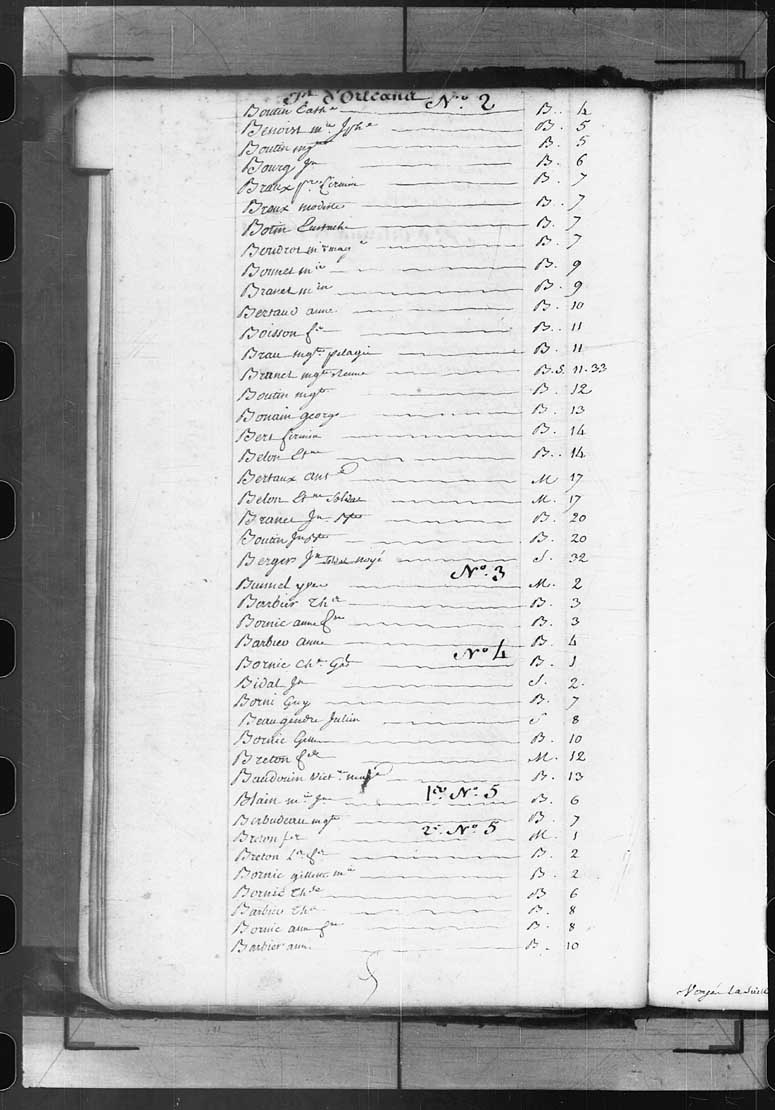 Pt d'Orleans No. 2
Boutin Cathe B. 4
Benoist mie Jphe B. 5
Boutin mgte B. 5
Bourg Jn B. 6
Braux pre firmin B. 7
Breux modeste B. 7
Botin Eustache B. 7
Boudrot mie mage B. 7
Bonnet mie B. 9
Branet min B. 9
Bertaud anne B. 10
Boisson fse B. 11
Brau mgte pelagie B. 11
Branet mgte B. S. 11. 33
Boutin mgte B. 12
Bonain george B. 13
Bert firmin B. 14
Belon Etne B. 14
Bertaux Ante M 17
Belon Etne M. 17
Branet Jn Bte B. 20
Boutin Jn Bte B. 20
Berger Jn noyé S. 32
No. 3
Bunnel yves M. 2
Barbier Thse B. 3
Bornic anne fse B. 3
Barbier anne B. 4
No 4
Bornic Cht B. 1
Bidal Jn S. 2.
Borni Guy B. 7
Beaugendre Julien S 8
Bornic B. 10
Breton M. 12
Baudouin Vict B. 13
1er No. 5
Blain mie B. 6
Berbudeau mgte B. 7
2e. No. 5
Breton M. 1
Breton B. 2
Bornic mie B. 2
Bornic B 6
Barbier Thse B. 8
Bornic ann fse B. 8
Barbier ann. B. 10
Voyés la suite